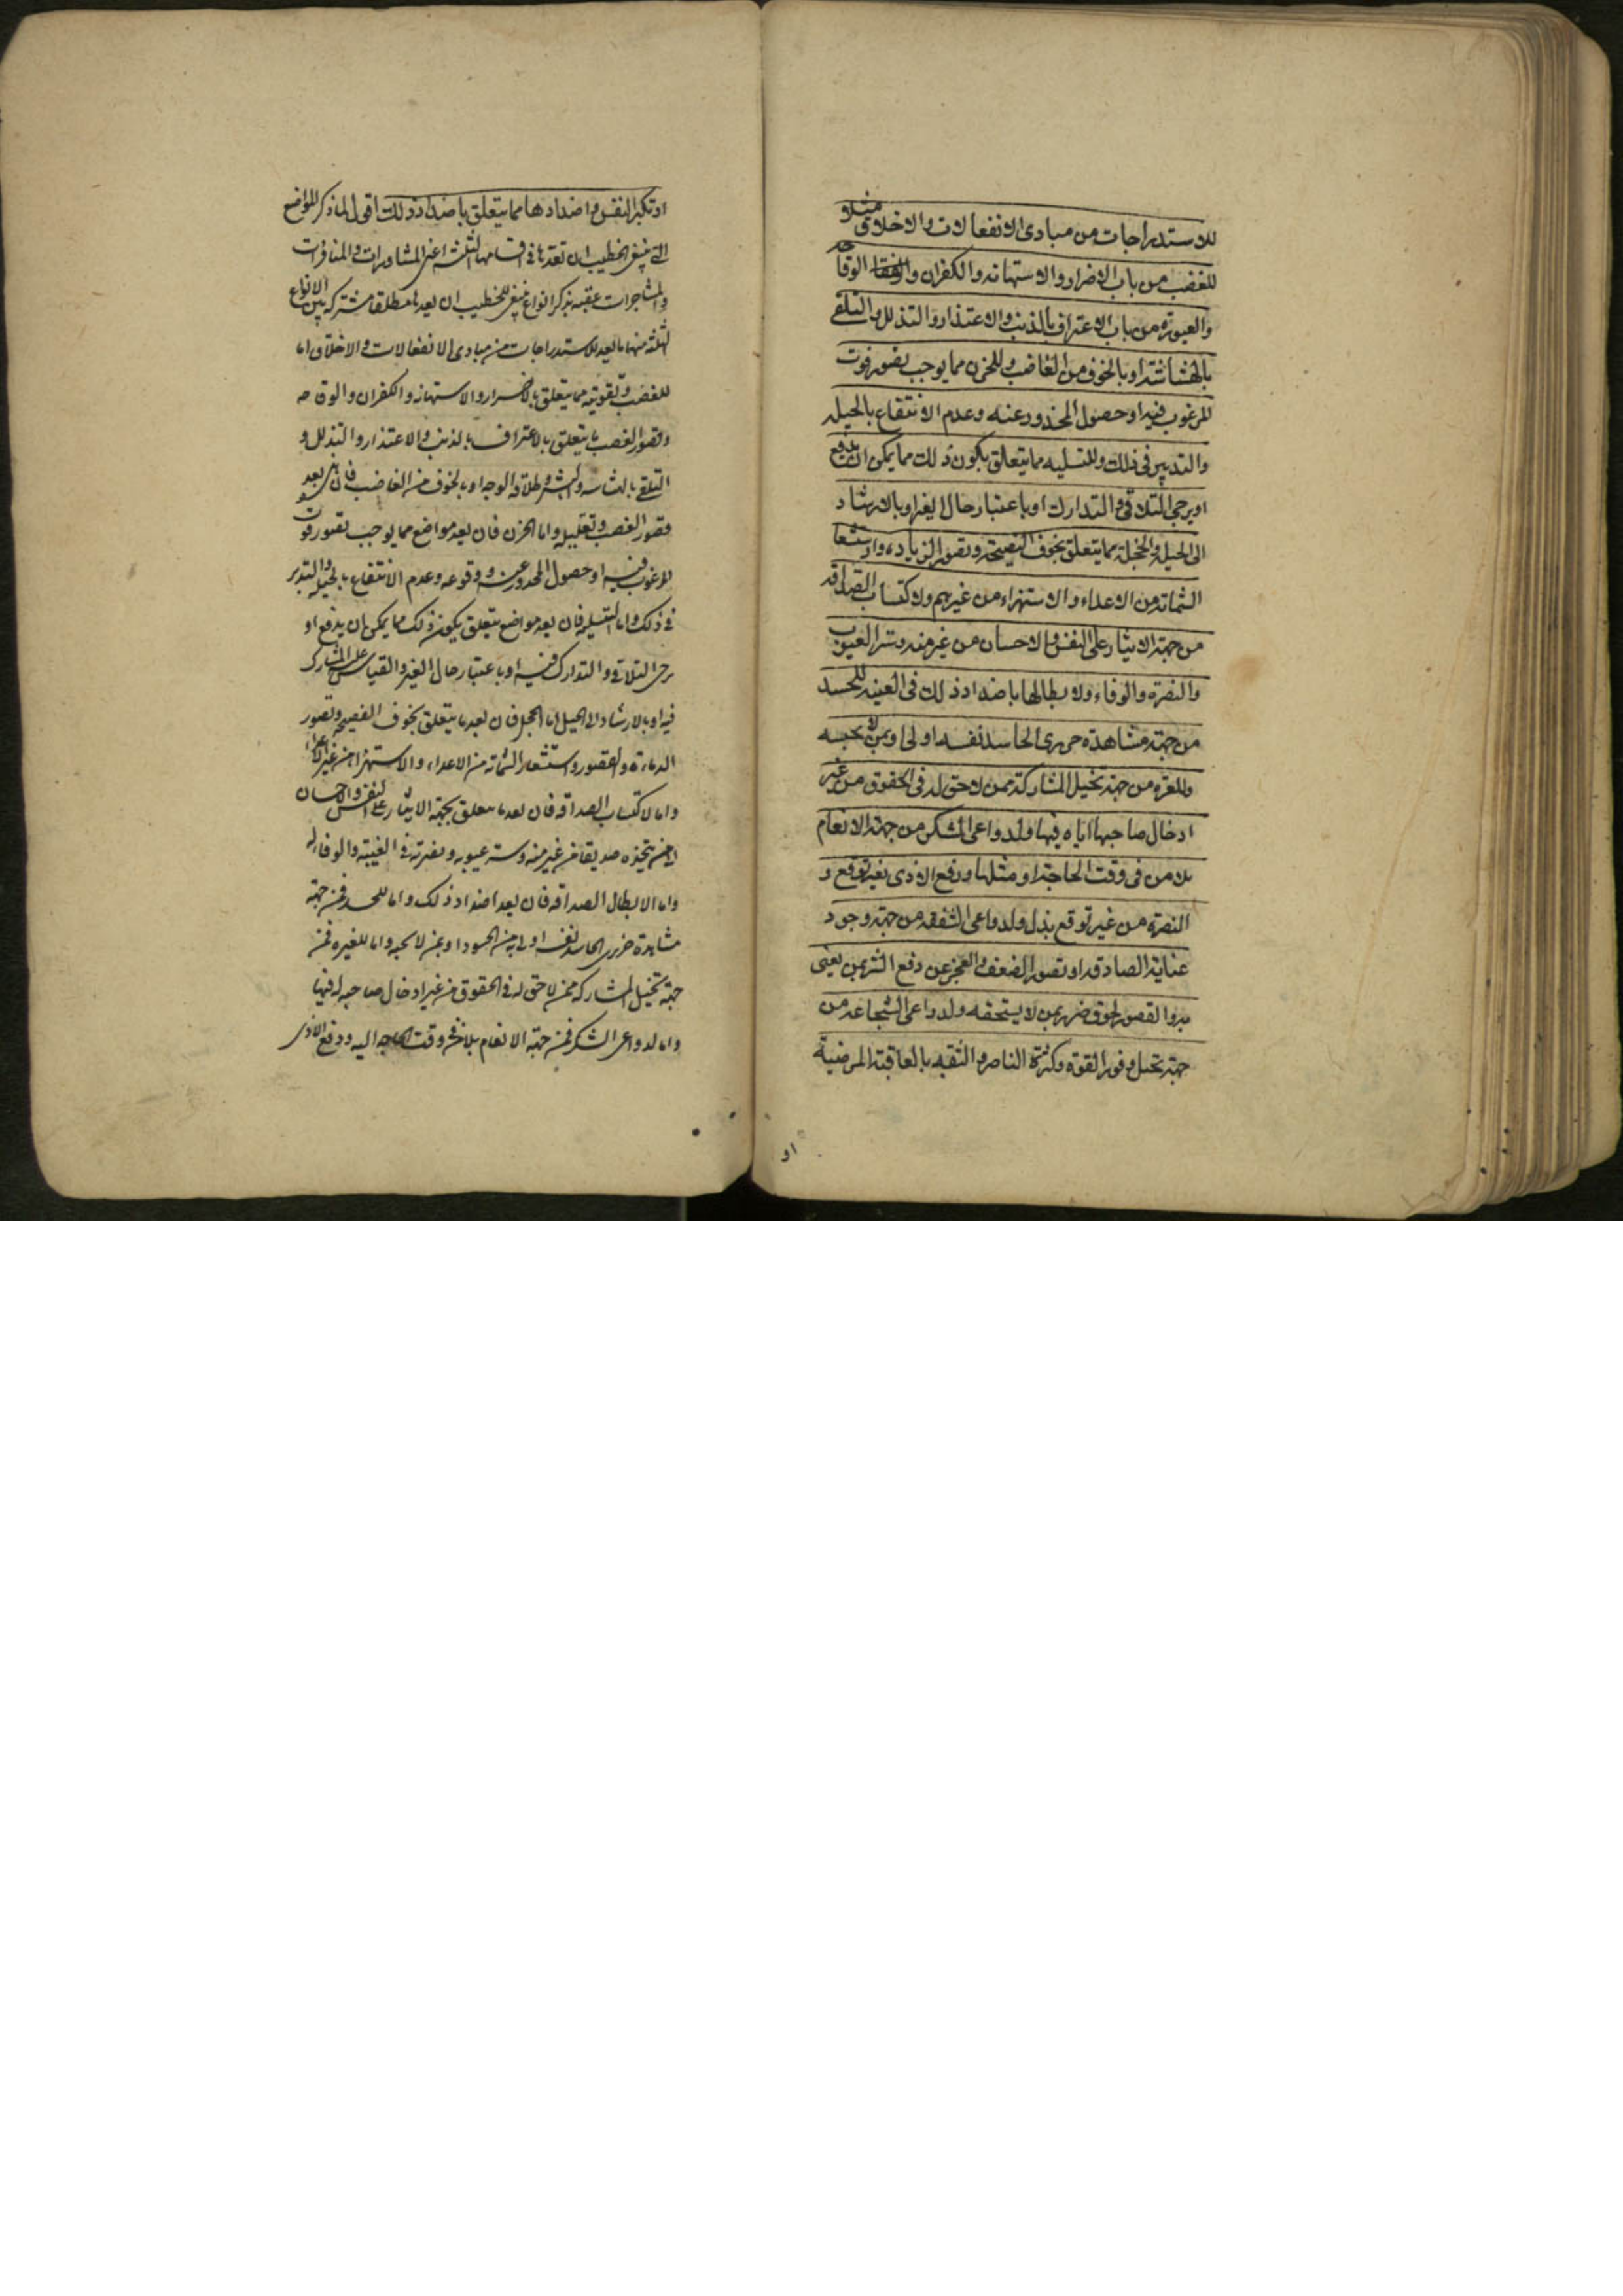 للاستدراجات من مبادى الانفعالات والاخلاق مثلا
للغضب من باب الاضرار والاستهانه والكفران والوقاحه
والعبوره من باب الاعتراف بالذنب والاعتذار والتذلل والتلقى
بالهشاشة او بالخوف من الغاضب وللحزن مما يوجب تصور فوت
المرغوب فيه او حصول المحذور عنه وعدم الانتفاع بالحيله
والتدبير فى ذلك وللتسليه مما يتعلق بكون ذلك مما يمكن ان يدفع
او يرجى التلافى والتدارك او باعتبار حال الغير او بالارشاد
الى الحيل وللخجلة مما يتعلق بخوف الفضيحة وتصور الزياده واستشعار
الشماتة من الاعداء والاستهزاء من غيرهم ولاكتساب الصداقه
من جهة الايثار على النفس والاحسان من غير منه وستر العيوب
والنصرة والوفاء ولابطالها باضداد ذلك فى الغيبه للحسد
من جهة مشاهدة من يرى الحاسد نفسه اولى او بمن لا يحبه
وللغيره من جهة تخيل المشاركة ممن لا حق له فى الحقوق من غير
ادخال صاحبها اياه فيها ولدواعى الشكر من جهة الانعام
بلا من فى وقت الحاجة او مثلها ودفع الاذى بغير توقع و
النصرة من غير توقع بذل ولدواعى الشفقه من جهة وجود
عناية الصادقة او تصور الضعف والعجز عن دفع الشر بمن يعنى
لحوق ضرر بمن لا يستحقه ولدواعى الشجاعه من
جهة تخيل وفور القوة وكثرة الناصر والثقه بالعاقبة المرضية
او
او تكبر النفس واضدادها مما يتعلق باضداد ذلك اقول لما ذكر المواضع
التى ينبغى للخطيب ان يعدها فى اقسامها الثلثه اعنى المشاورات والمنافرات
والمشاجرات عقبه بذكر انواع ينبغى للخطيب ان يعدها مطلقا مشتركه بين الانواع
الثلثه منها ما يعد للاستدراجات من مبادى الانفعالات والاخلاق اما
للغضب وتقويته مما يتعلق بالاضرار والاستهانه والكفران والوقاحه
وقصور الغضب ما يتعلق بالاعتراف بالذنب والاعتذار والتذلل و
التلقى بالبشاشه والبشر وطلاقه الوجه او بالخوف من الغاضب فان يعد
قصور الغضب وتقليله واما الحزن فان يعد مواضع مما يوجب تصور فوت
المرغوب فيه او حصول المحذور عنه ووقوعه وعدم الانتفاع بالحيله والتدبير
فى ذلك واما التسليه فان يعد مواضع يتعلق بكون ذلك مما يمكن ان يدفع او
يرجى التلافى والتدارك فيه او باعتبار حال الغير والقياس على المشارك
فيه او بالارشاد الى الحيل اما الخجل فان يعد ما يتعلق بخوف الفضيحه وتصور
والقصور واستشعار الشماته من الاعداء والاستهزاء من غير الاعداء
واما لاكتساب الصداقه فان يعد ما يتعلق بجهة الايثار على النفس والاحسان
لمن يتخذه صديقا من غير منه وستر عيوبه ونصرته فى الغيبه والوفا له
واما لابطال الصداقه فان يعد اضداد ذلك واما للحسد فمن جهة
مشاهدة من يرى الحاسد نفسه اولى به من المحسود او بمن لا يحبه واما للغيره فمن
جهة تخيل المشاركه ممن لا حق له فى الحقوق من غير ادخال صاحبه له فيها
واما لدواعى الشكر فمن جهة الانعام بلا من فى وقت الحاجه اليه ودفع الاذى